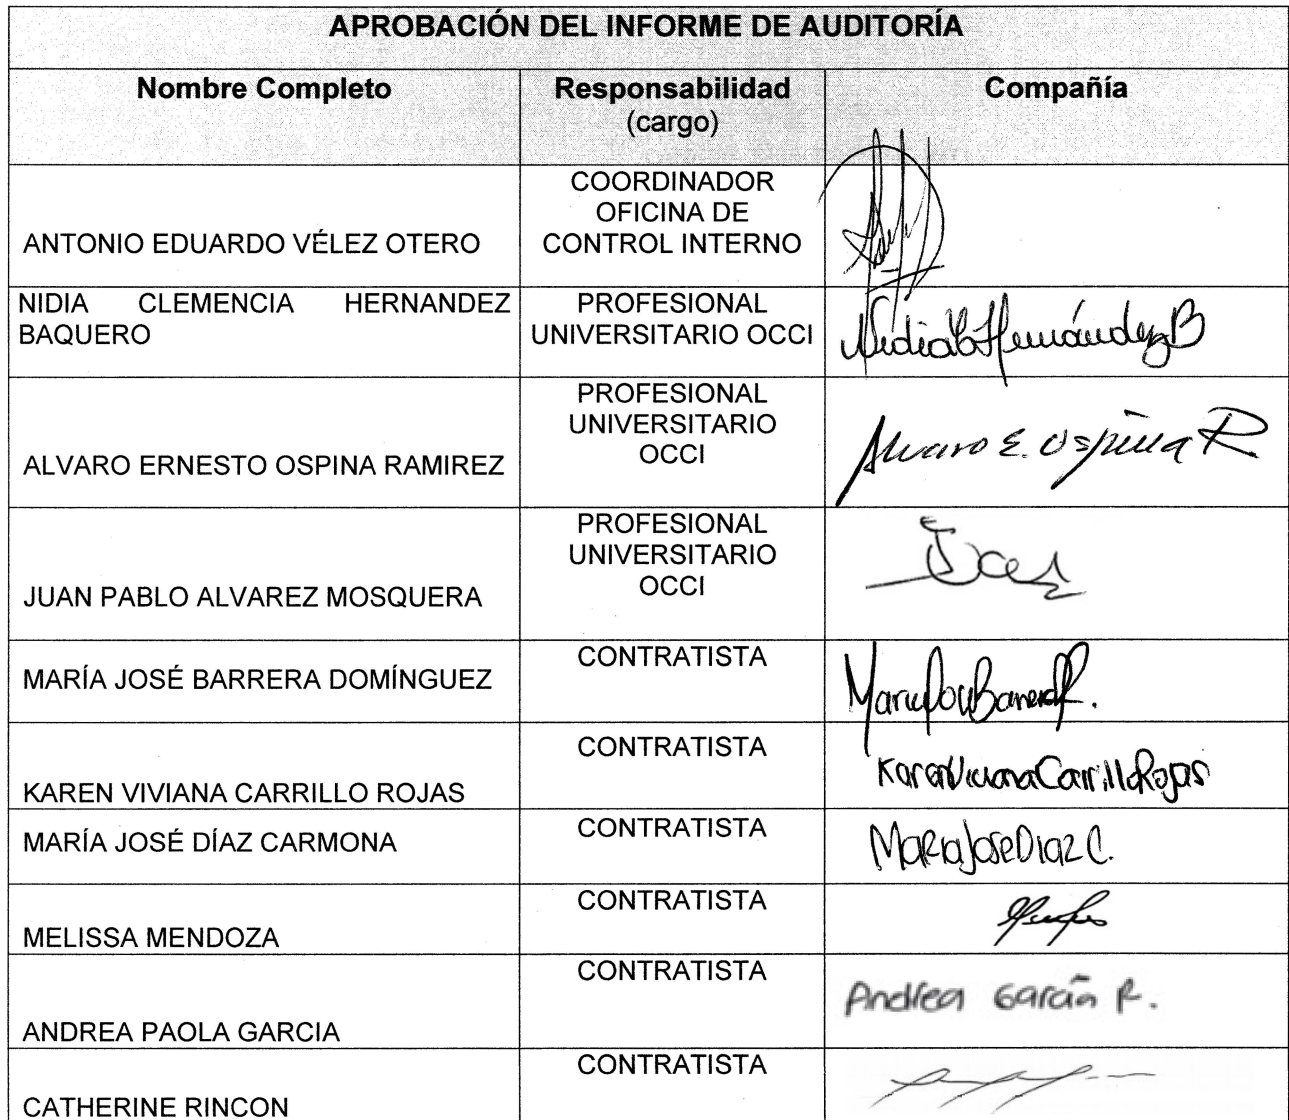 APROBACIÓN DEL INFORME DE AUDITORÍA
Nombre Completo
Responsabilidad
(cargo)
Compañía
ANTONIO EDUARDO VÉLEZ OTERO
COORDINADOR
OFICINA DE
CONTROL INTERNO
NIDIA CLEMENCIA HERNANDEZ
BAQUERO
PROFESIONAL
UNIVERSITARIO OCCI
Nidia C Hernández B
ALVARO ERNESTO OSPINA RAMIREZ
PROFESIONAL
UNIVERSITARIO
OCCI
Alvaro E. Ospina R
JUAN PABLO ALVAREZ MOSQUERA
PROFESIONAL
UNIVERSITARIO
OCCI
MARÍA JOSÉ BARRERA DOMÍNGUEZ
CONTRATISTA
KAREN VIVIANA CARRILLO ROJAS
CONTRATISTA
Karen Viviana Carrillo Rojas
MARÍA JOSÉ DÍAZ CARMONA
CONTRATISTA
Maria Jose Diaz C.
MELISSA MENDOZA
CONTRATISTA
ANDREA PAOLA GARCIA
CONTRATISTA
Andrea García R.
CATHERINE RINCON
CONTRATISTA